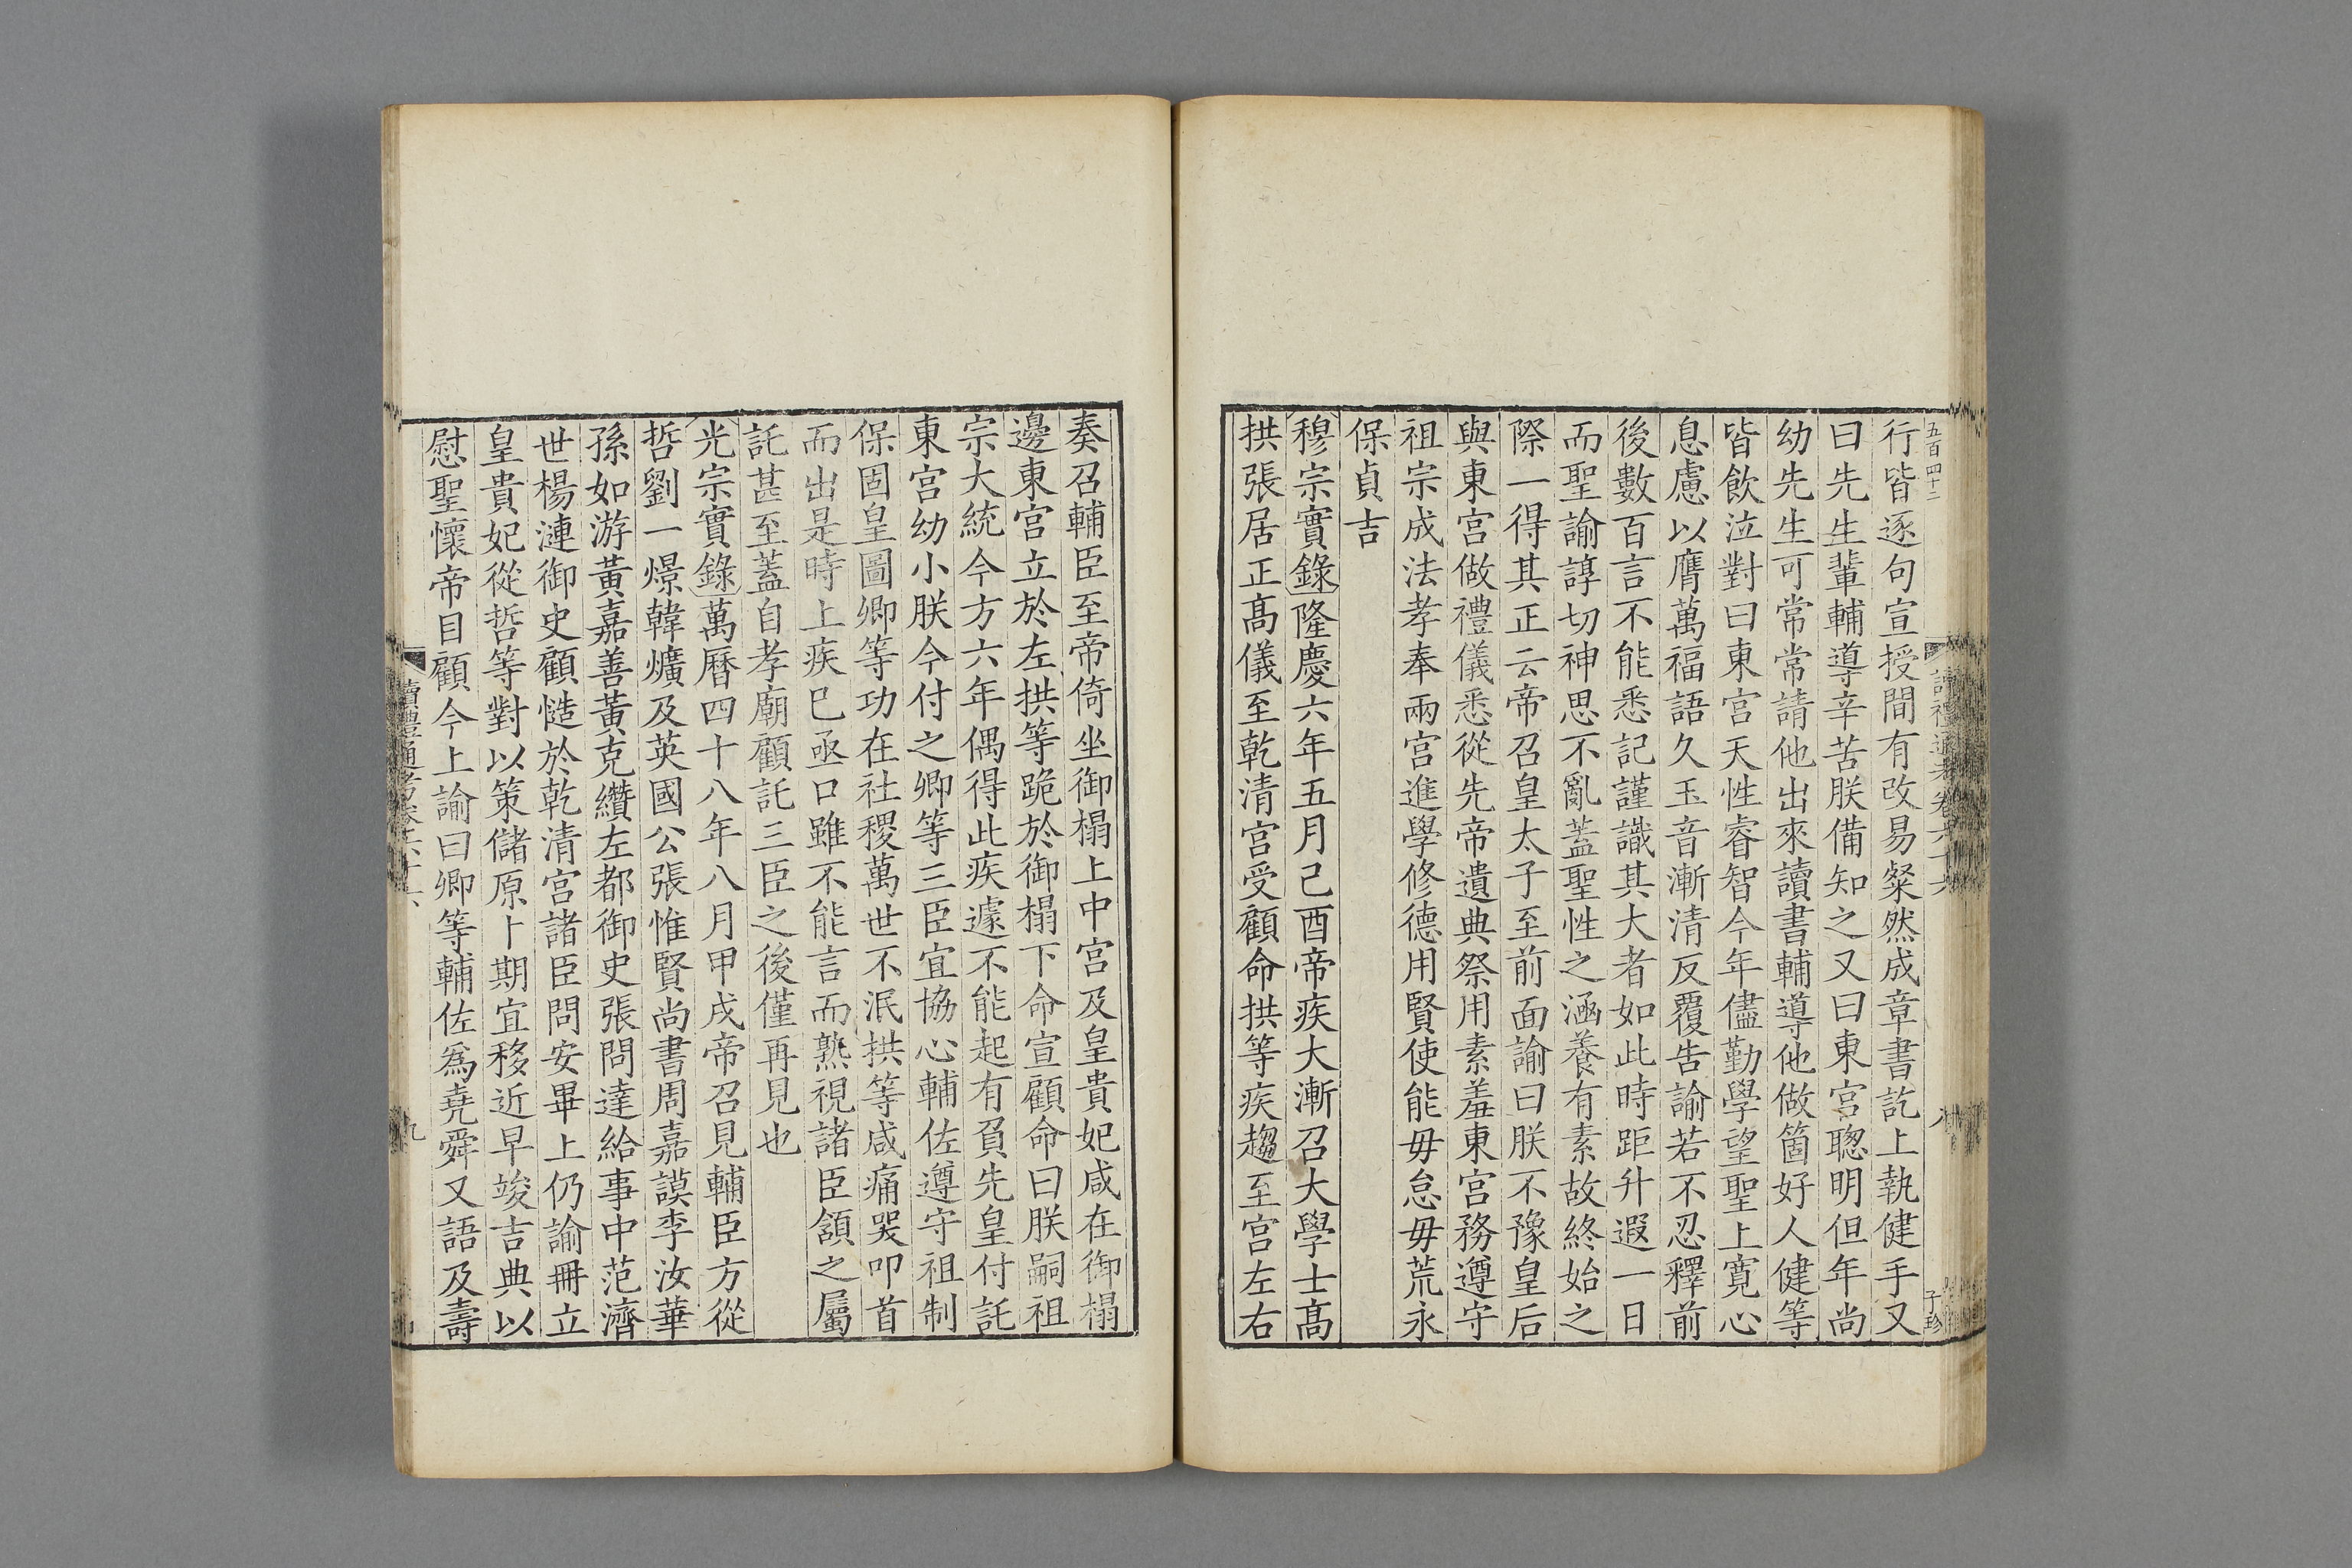 五百四十二
行皆逐句宣授間有改易粲然成章書訖上執健手又
曰先生輩輔導辛苦朕備知之又曰東宮聰明但年尚
幼先生可常常請他出來讀書輔導他做箇好人健等
皆飲泣對曰東宮天性睿智今年儘勤學望聖上寛心
息慮以膺萬福語久玉音漸清反覆告諭若不忍釋前
後數百言不能悉記謹識其大者如此時距升遐一日
而聖諭諄切神思不亂蓋聖性之涵養有素故終始之
際一得其正云帝召皇太子至前面諭曰朕不豫皇后
與東宮做禮儀悉從先帝遺典祭用素羞東宮務遵守
祖宗成法孝奉兩宮進學修德用賢使能毋怠毋荒永
保貞吉
穆宗實錄隆慶六年五月己酉帝疾大漸召大學士高
拱張居正高儀至乾清宮受顧命拱等疾趨至宮左右
讀禮通考卷六十六
八
子珍
奏召輔臣至帝倚坐御榻上中宮及皇貴妃咸在御榻
邊東宮立於左拱等跪於御榻下命宣顧命曰朕嗣祖
宗大統今方六年偶得此疾遽不能起有負先皇付託
東宮幼小朕今付之卿等三臣宜協心輔佐遵守祖制
保固皇圖卿等功在社稷萬世不泯拱等咸痛哭叩首
而出是時上疾已亟口雖不能言而熟視諸臣頷之屬
託甚至蓋自孝廟顧託三臣之後僅再見也
光宗實錄萬曆四十八年八月甲戌帝召見輔臣方從
哲劉一燝韓爌及英國公張惟賢尚書周嘉謨李汝華
孫如游黃嘉善黃克纘左都御史張問達給事中范濟
世楊漣御史顧慥於乾清宮諸臣問安畢上仍諭冊立
皇貴妃從哲等對以策儲原卜期宜移近早竣吉典以
慰聖懷帝目顧今上諭曰卿等輔佐為堯舜又語及壽
讀禮通考卷六十六
九